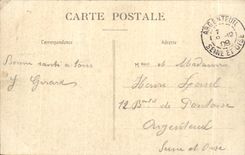 CARTE POSTALE
Correspondance
Adresse
ARGENTEUIL
SEINE ET OISE
09
Bonne santé à tous
Girard
et Madame
Henri
12 Bard de Pontoise
Argenteuil
Seine et Oise